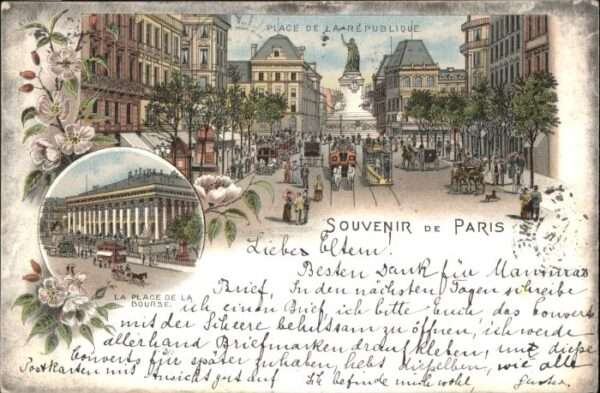 PLACE DE LA RÉPUBLIQUE
SOUVENIR DE PARIS
LA PLACE DE LA
BOURSE.
Liebe Eltern!
Besten Dank für
Brief. In den nächsten Tagen schreibe
ich einen Brief, ich bitte Euch das Couvert
mit der Scheere behutsam zu öffnen, ich werde
allerhand Briefmarken draufkleben, und diese
Couverts für später zu haben, hebt dieselben, wie alle
Postkarten mit Ansicht gut auf Ich befinde mich wohl,